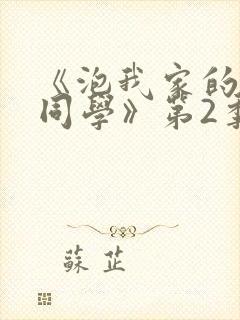 《泡我家的
同學》第2
蘇芷